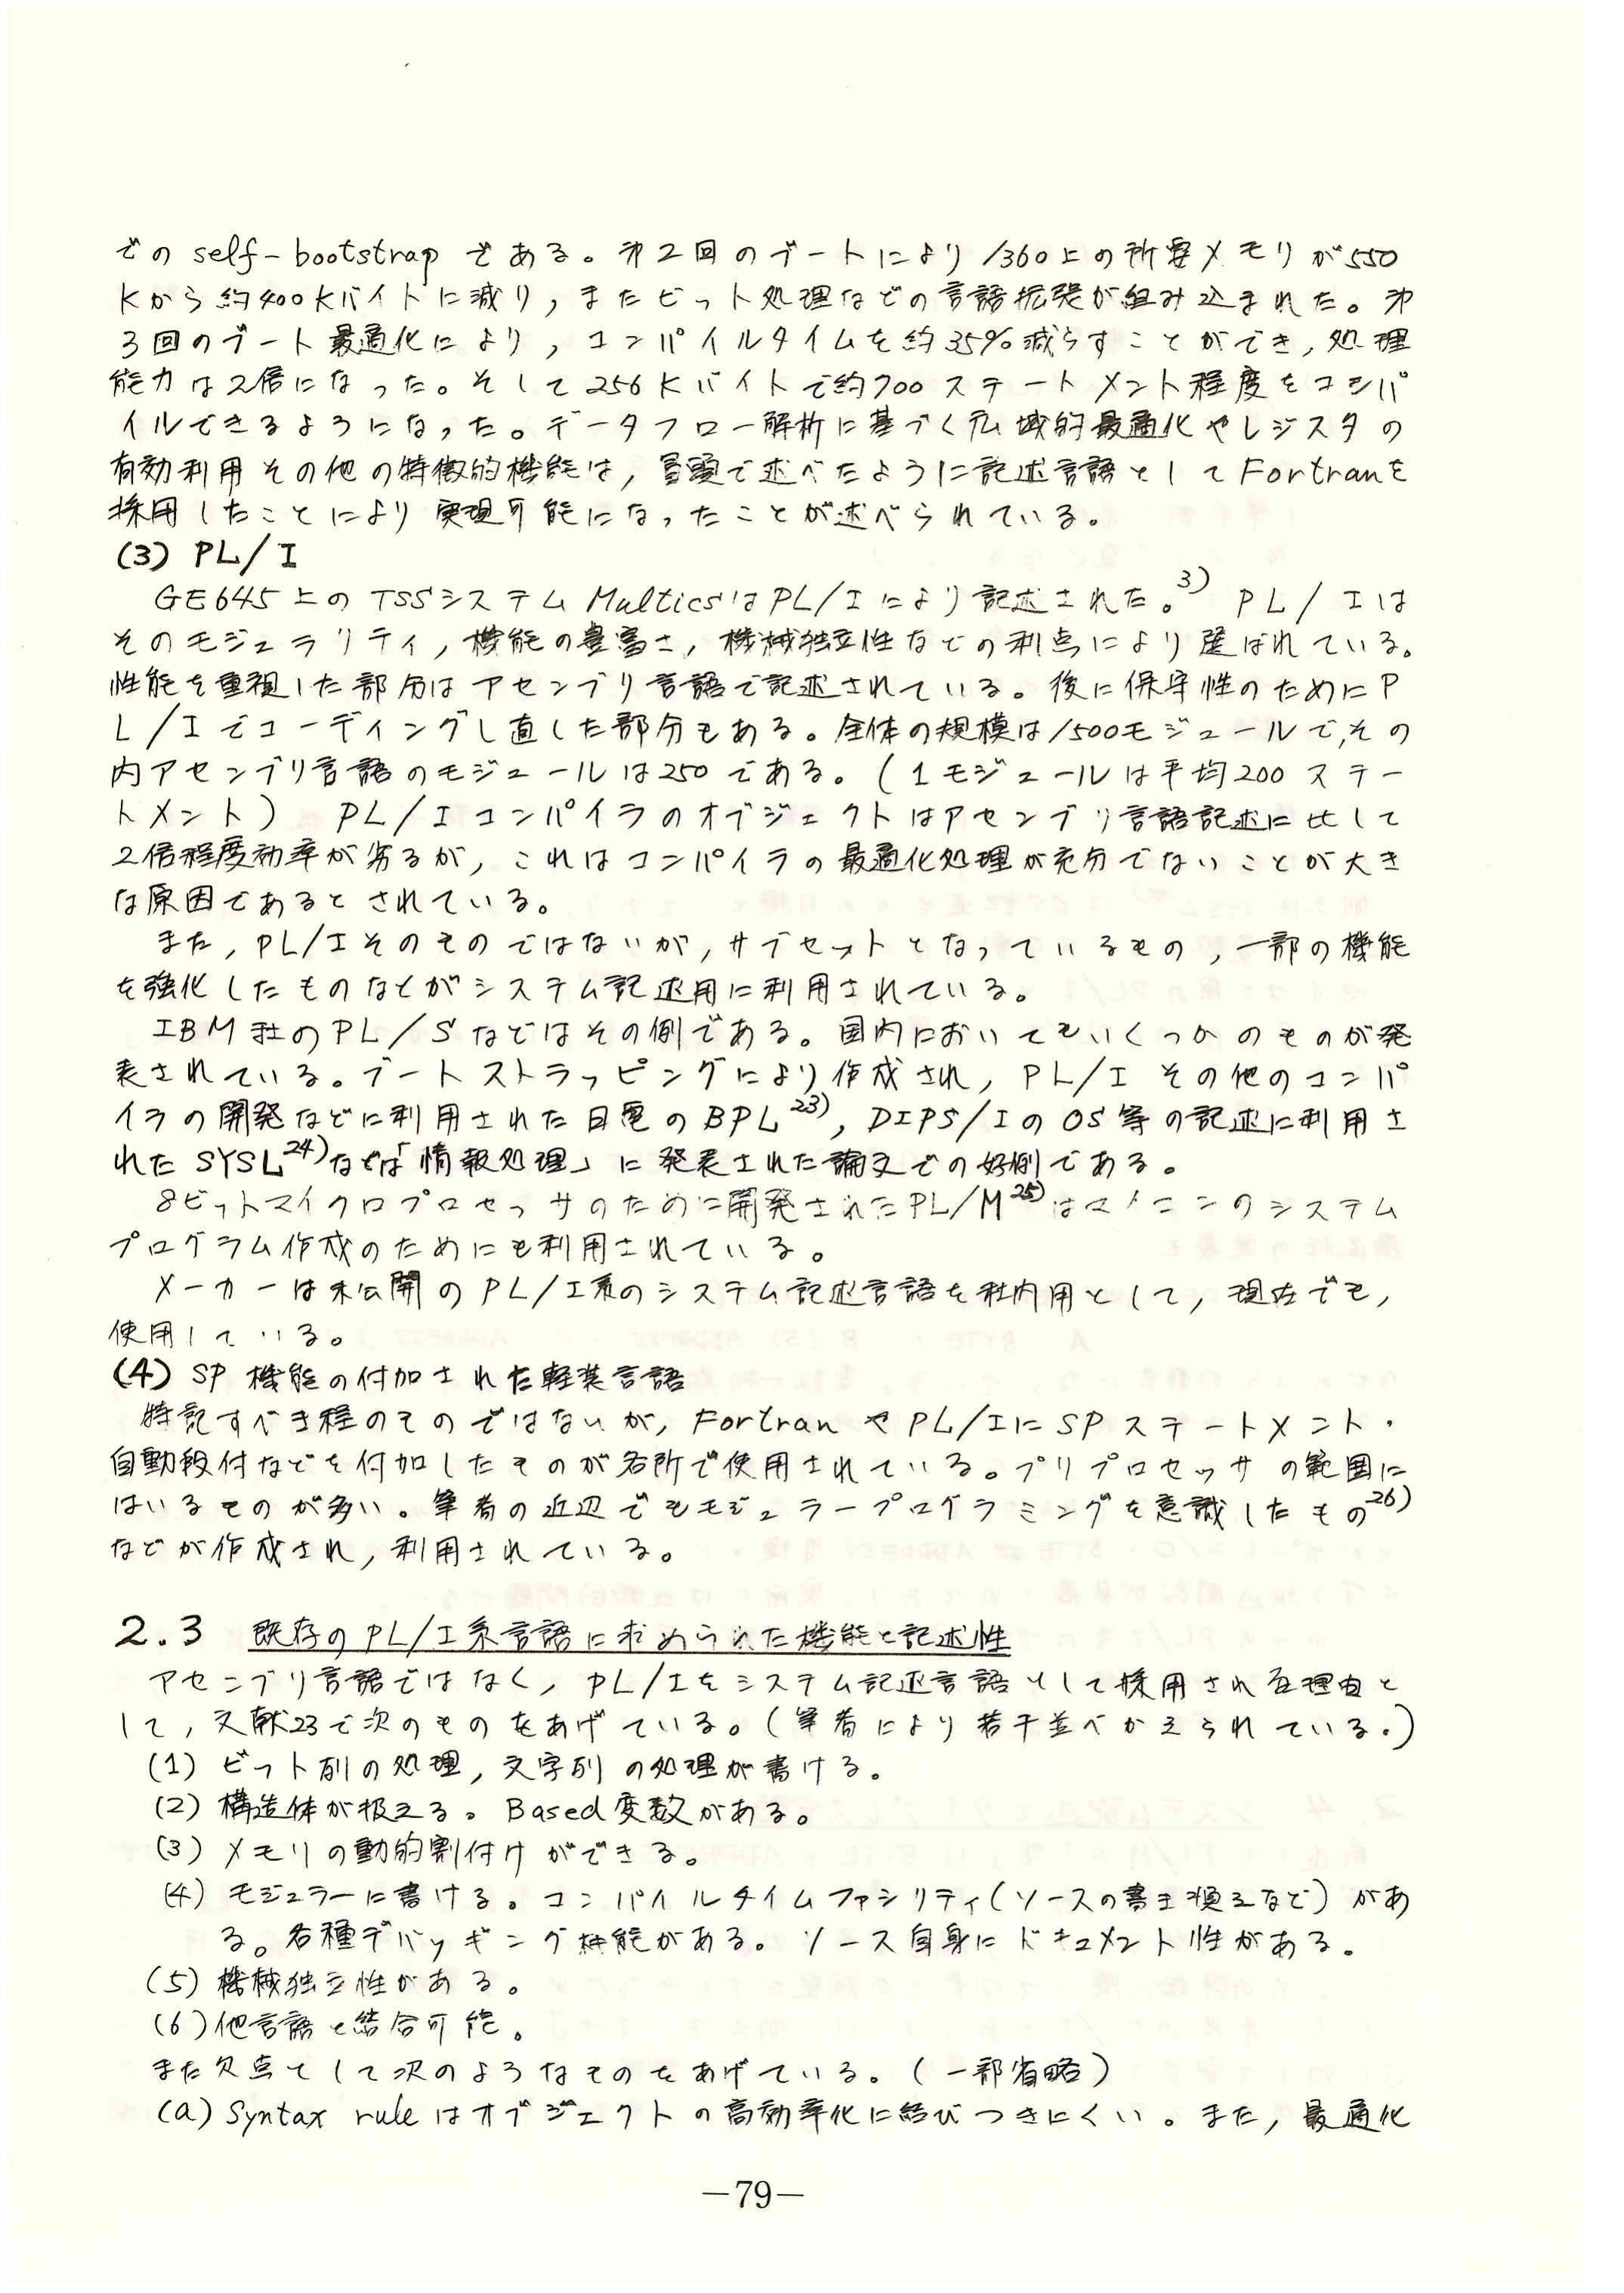 でのself-bootstrapである。第2回のブートにより/360上の所要メモリが550
Kから約400Kバイトに減り，またビット処理などの言語拡張が組み込まれた。第
3回のブート最適化により，コンパイルタイムを約35%減らすことができ，処理
能力は2倍になった。そして256Kバイトで約700ステートメント程度をコンパ
イルできるようになった。データフロー解析に基づく広域的最適化やレジスタの
有効利用その他の特徴的機能は，冒頭で述べたように記述言語としてFortranを
採用したことにより実現可能になったことが述べられている。
(3) PL/I
GE645上のTSSシステムMulticsはPL/Iにより記述された。3) PL/Iは
そのモジュラリティ，機能の豊富さ，機械独立性などの利点により選ばれている。
性能を重視した部分はアセンブリ言語で記述されている。後に保守性のためにP
L/Iでコーディングし直した部分もある。全体の規模は1500モジュールで，その
内アセンブリ言語のモジュールは250である。(1モジュールは平均200ステー
トメント) PL/Iコンパイラのオブジェクトはアセンブリ言語記述に比して
2倍程度効率が劣るが，これはコンパイラの最適化処理が充分でないことが大き
な原因であるとされている。
また，PL/Iそのものではないが，サブセットとなっているもの，一部の機能
を強化したものなどがシステム記述用に利用されている。
IBM社のPL/Sなどはその例である。国内においてもいくつかのものが発
表されている。ブートストラッピングにより作成され，PL/Iその他のコンパ
イラの開発などに利用された日電のBPL23)，DIPS/IのOS等の記述に利用さ
れたSYSL24)などは「情報処理」に発表された論文での好例である。
8ビットマイクロプロセッサのために開発されたPL/M25)はマイコンのシステム
プログラム作成のためにも利用されている。
メーカーは未公開のPL/I系のシステム記述言語を社内用として，現在でも，
使用している。
(4) SP機能の付加された軽装言語
特記すべき程のものではないが，FortranやPL/IにSPステートメント・
自動段付などを付加したものが各所で使用されている。プリプロセッサの範囲に
はいるものが多い。筆者の近辺でもモジュラープログラミングを意識したもの26)
などが作成され，利用されている。
2.3 既存のPL/I系言語に求められた機能と記述性
アセンブリ言語ではなく，PL/Iをシステム記述言語として採用された理由と
して，文献23で次のものをあげている。(筆者により若干並べかえられている。)
(1) ビット列の処理，文字列の処理が書ける。
(2) 構造体が扱える。Based変数がある。
(3) メモリの動的割付けができる。
(4) モジュラーに書ける。コンパイルタイムファシリティ(ソースの書き換えなど)があ
る。各種デバッギング機能がある。ソース自身にドキュメント性がある。
(5) 機械独立性がある。
(6) 他言語と結合可能。
また欠点として次のようなものをあげている。(一部省略)
(a) Syntax ruleはオブジェクトの高効率化に結びつきにくい。また，最適化
—79—